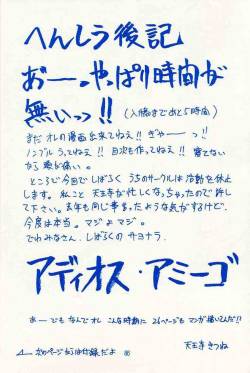 へんしう後記
おーーっ、やっぱり時間が
無いっっ!!
(入稿まであと5時間)
まだオレの漫画出来てねえ!!ぎゃーーっ!!
ノンブルうってねえ!!目次も作ってねえ!!寝てない
から頭が痛い。
ところで今回でしばらくうちのサークルは活動を休止
します。私こと天王寺が忙しくなっちゃたので許し
て下さい。去年も同じ事言ったような気がするけど、
今度は本当。マジよマジ。
でわみなさん、しばらくのサヨナラ。
アディオス・アミーゴ
あーでもなんでオレこんな時期に26ページもマンガ描いてんだ!!
天王寺きつね
次のページからは付録だよ